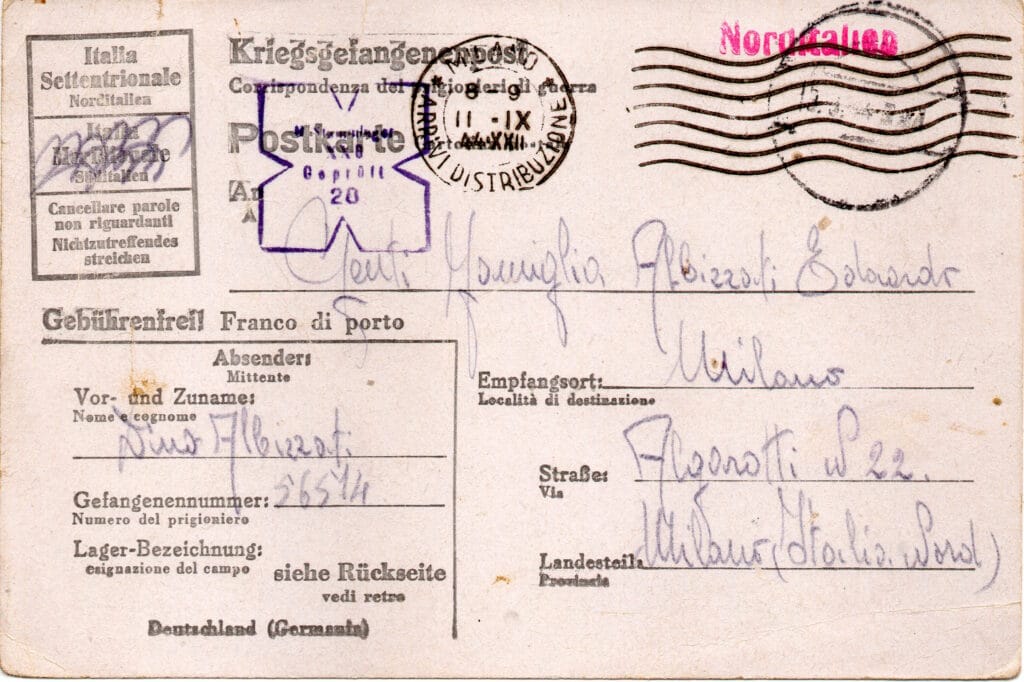 Italia
Settentrionale
Norditalien
Italia
Meridionale
Süditalien
Cancellare parole
non riguardanti
Nichtzutreffendes
streichen
Kriegsgefangenenpost
Corrispondenza dei prigionieri di guerra
Postkarte
An
A
Geprüft
20
MILANO
8 - 9
11 - IX
44·XXII
ARRIVI DISTRIBUZIONE
Norditalien
Gent. Famiglia Albizzati Edoardo
Gebührenfrei! Franco di porto
Absender:
Mittente
Vor- und Zuname:
Nome e cognome
Dino Albizzati
Gefangenennummer: 56514
Numero del prigioniero
Lager-Bezeichnung:
esignazione del campo
siehe Rückseite
vedi retro
Deutschland (Germania)
Empfangsort: Milano
Località di destinazione
Straße: Algarotti N 22.
Via
Landesteil: Milano (Italia Nord)
Provincia